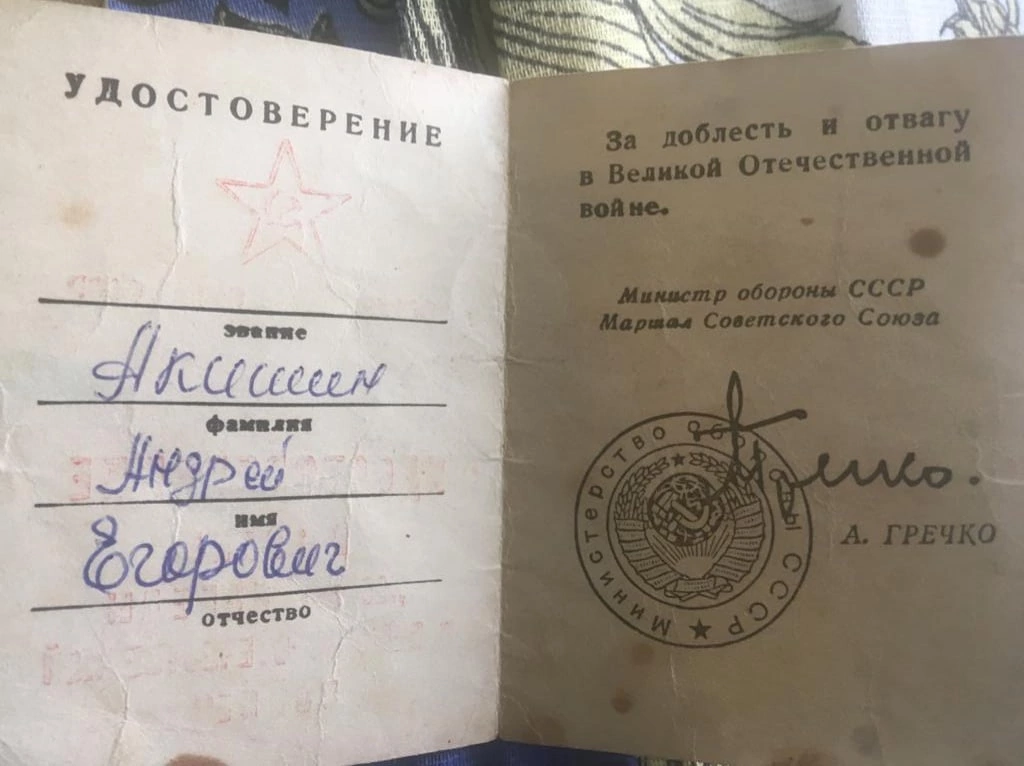 УДОСТОВЕРЕНИЕ
звание
Акишин
фамилия
Андрей
имя
Егорович
отчество
За доблесть и отвагу
в Великой Отечественной
войне.
Министр обороны СССР
Маршал Советского Союза
Гречко.
Министерство обороны СССР
А. ГРЕЧКО